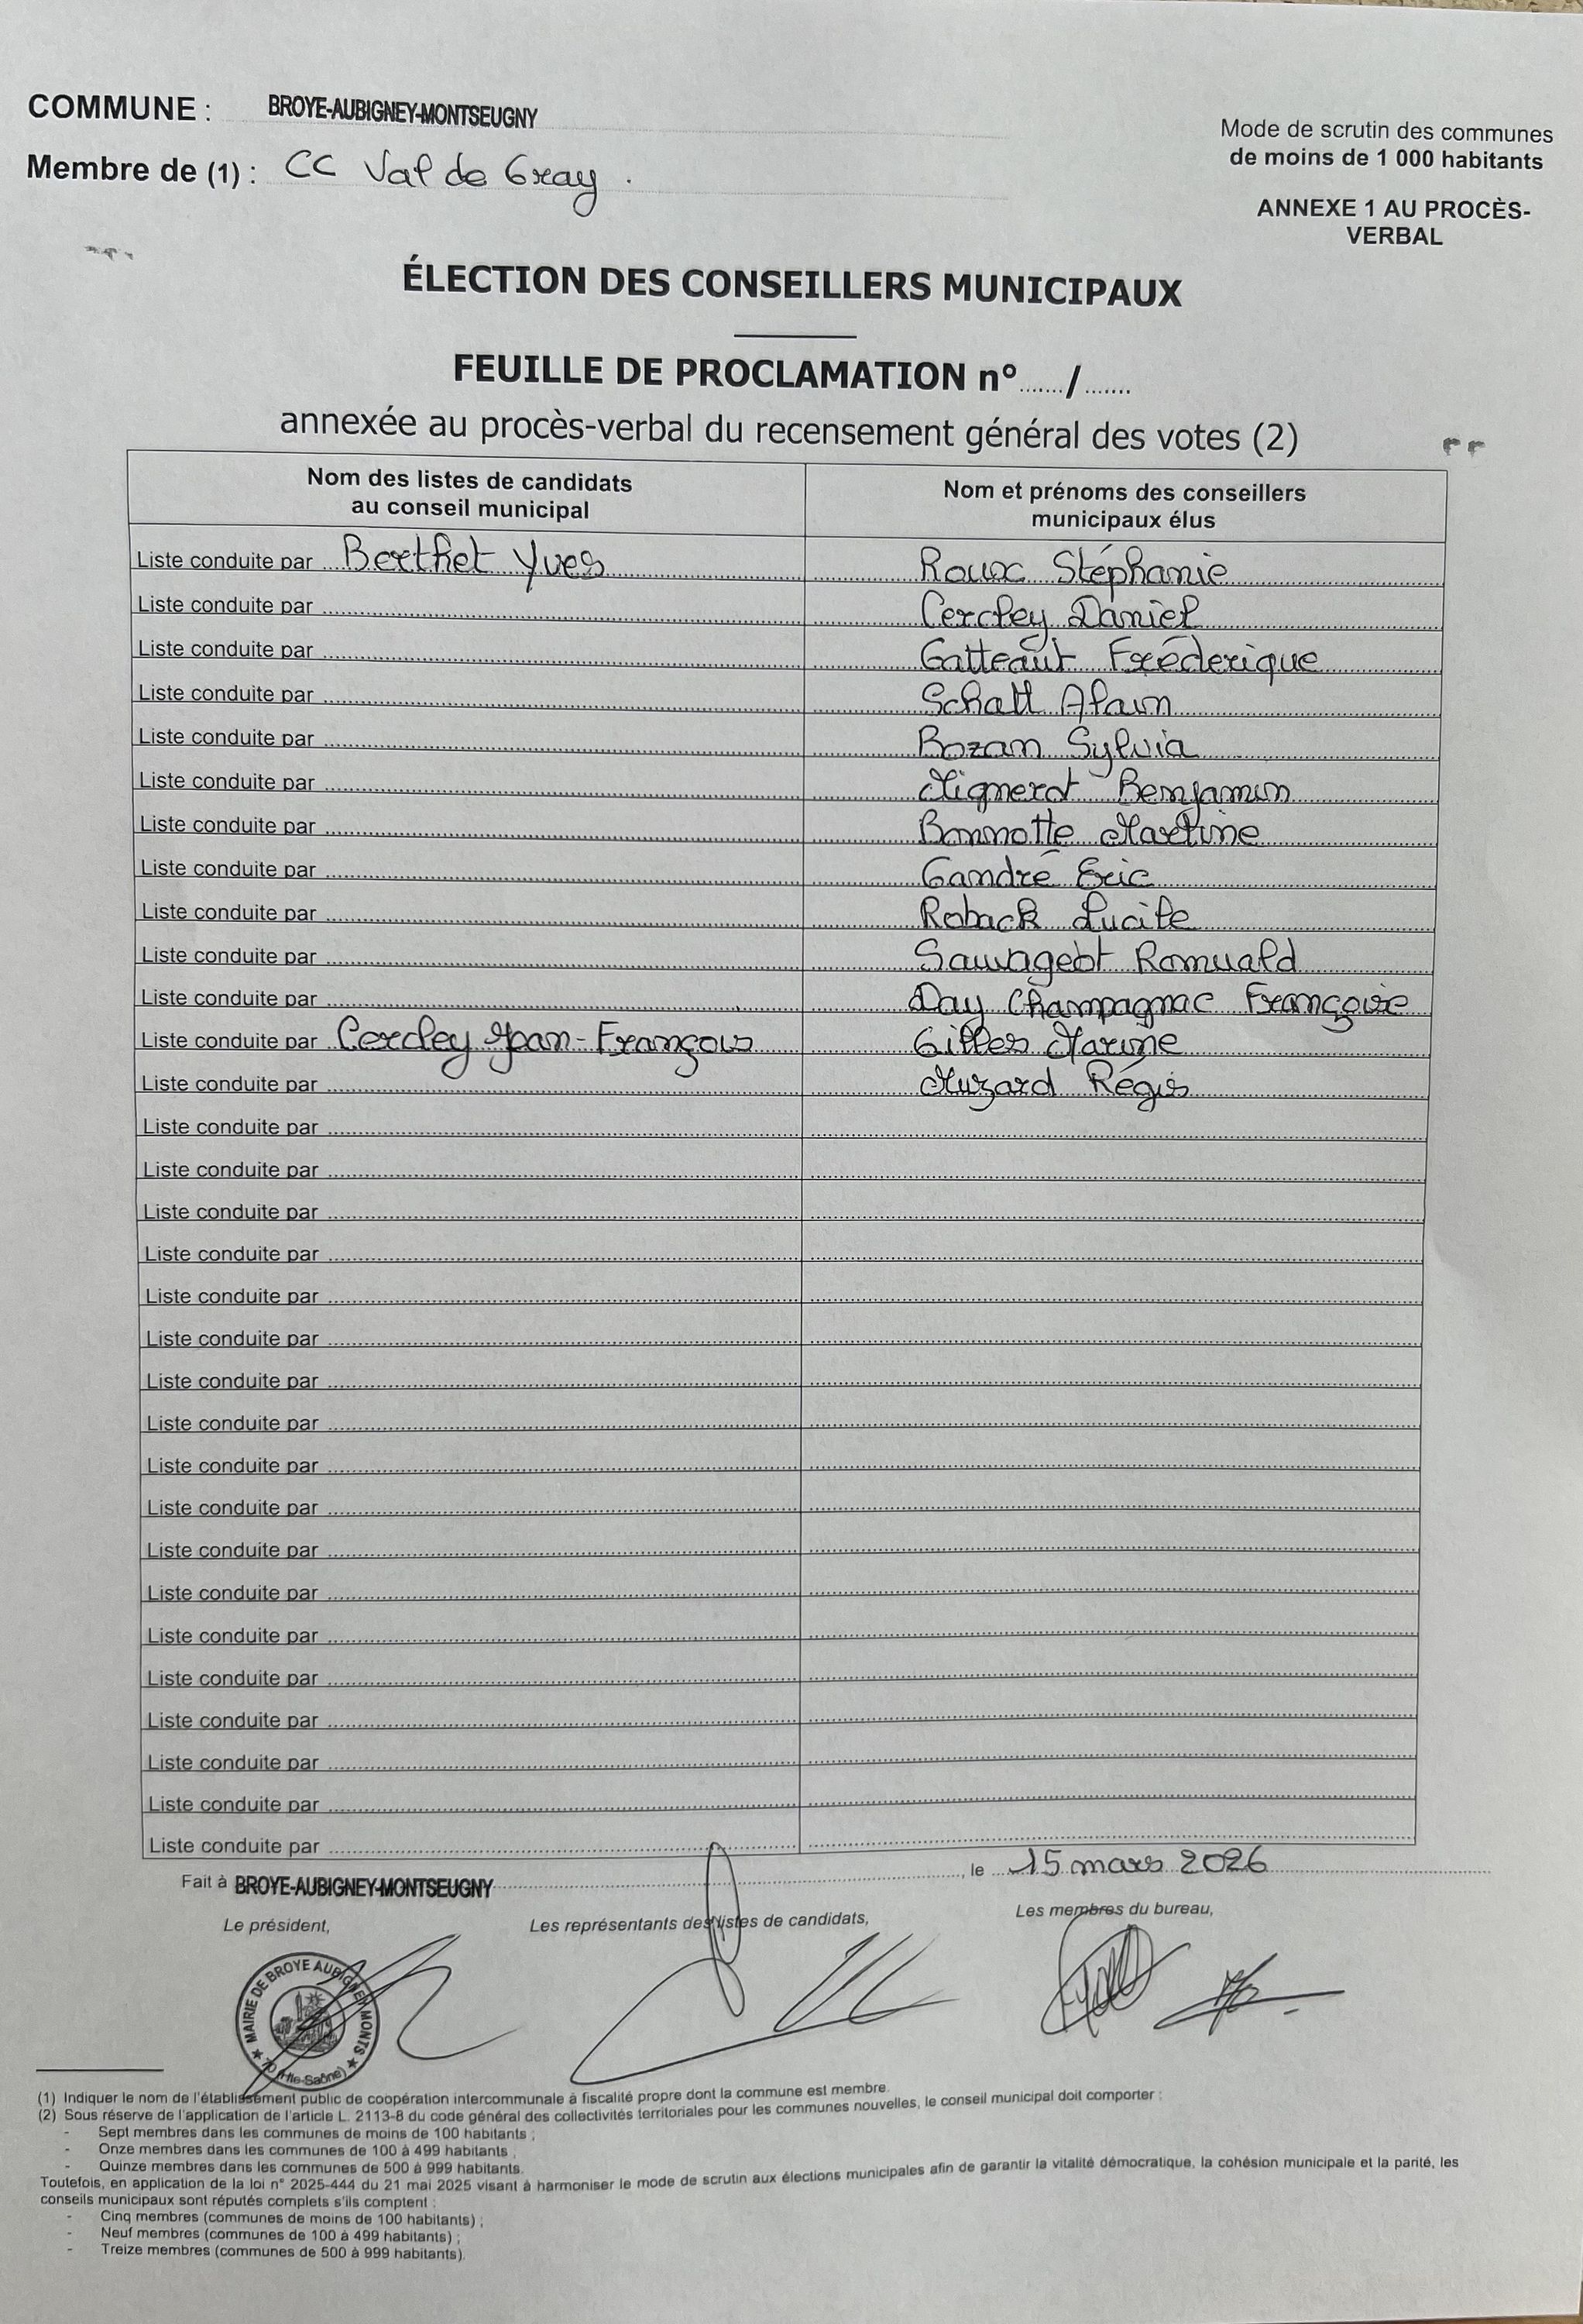 COMMUNE : BROYE-AUBIGNEY-MONTSEUGNY
Membre de (1) : CC Val de Gray .
Mode de scrutin des communes
de moins de 1 000 habitants
ANNEXE 1 AU PROCÈS-
VERBAL
ÉLECTION DES CONSEILLERS MUNICIPAUX
FEUILLE DE PROCLAMATION n° ....../.......
annexée au procès-verbal du recensement général des votes (2)
Nom des listes de candidats
au conseil municipal
Nom et prénoms des conseillers
municipaux élus
Liste conduite par Berthet Yves Roux Stéphanie
Liste conduite par Cercley Daniel
Liste conduite par Gatteaut Fréderique
Liste conduite par Schall Alain
Liste conduite par Bozan Sylvia
Liste conduite par Mignerot Benjamin
Liste conduite par Bonnotte Martine
Liste conduite par Gandré Eric
Liste conduite par Roback Lucile
Liste conduite par Sauvageot Romuald
Liste conduite par Day Champagnac Françoise
Liste conduite par Cercley Jean-François Gilles Marine
Liste conduite par Muzard Régis
Liste conduite par
Liste conduite par
Liste conduite par
Liste conduite par
Liste conduite par
Liste conduite par
Liste conduite par
Liste conduite par
Liste conduite par
Liste conduite par
Liste conduite par
Liste conduite par
Liste conduite par
Liste conduite par
Liste conduite par
Liste conduite par
Liste conduite par
Liste conduite par
Fait à BROYE-AUBIGNEY-MONTSEUGNY, le 15 mars 2026
Le président,
Les représentants des listes de candidats,
Les membres du bureau,
MAIRIE DE BROYE AUBIGNEY MONTS
70 (Hte-Saône)
(1) Indiquer le nom de l'établissement public de coopération intercommunale à fiscalité propre dont la commune est membre.
(2) Sous réserve de l'application de l'article L. 2113-8 du code général des collectivités territoriales pour les communes nouvelles, le conseil municipal doit comporter :
- Sept membres dans les communes de moins de 100 habitants ;
- Onze membres dans les communes de 100 à 499 habitants ;
- Quinze membres dans les communes de 500 à 999 habitants.
Toutefois, en application de la loi n° 2025-444 du 21 mai 2025 visant à harmoniser le mode de scrutin aux élections municipales afin de garantir la vitalité démocratique, la cohésion municipale et la parité, les
conseils municipaux sont réputés complets s'ils comptent :
- Cinq membres (communes de moins de 100 habitants) ;
- Neuf membres (communes de 100 à 499 habitants) ;
- Treize membres (communes de 500 à 999 habitants).